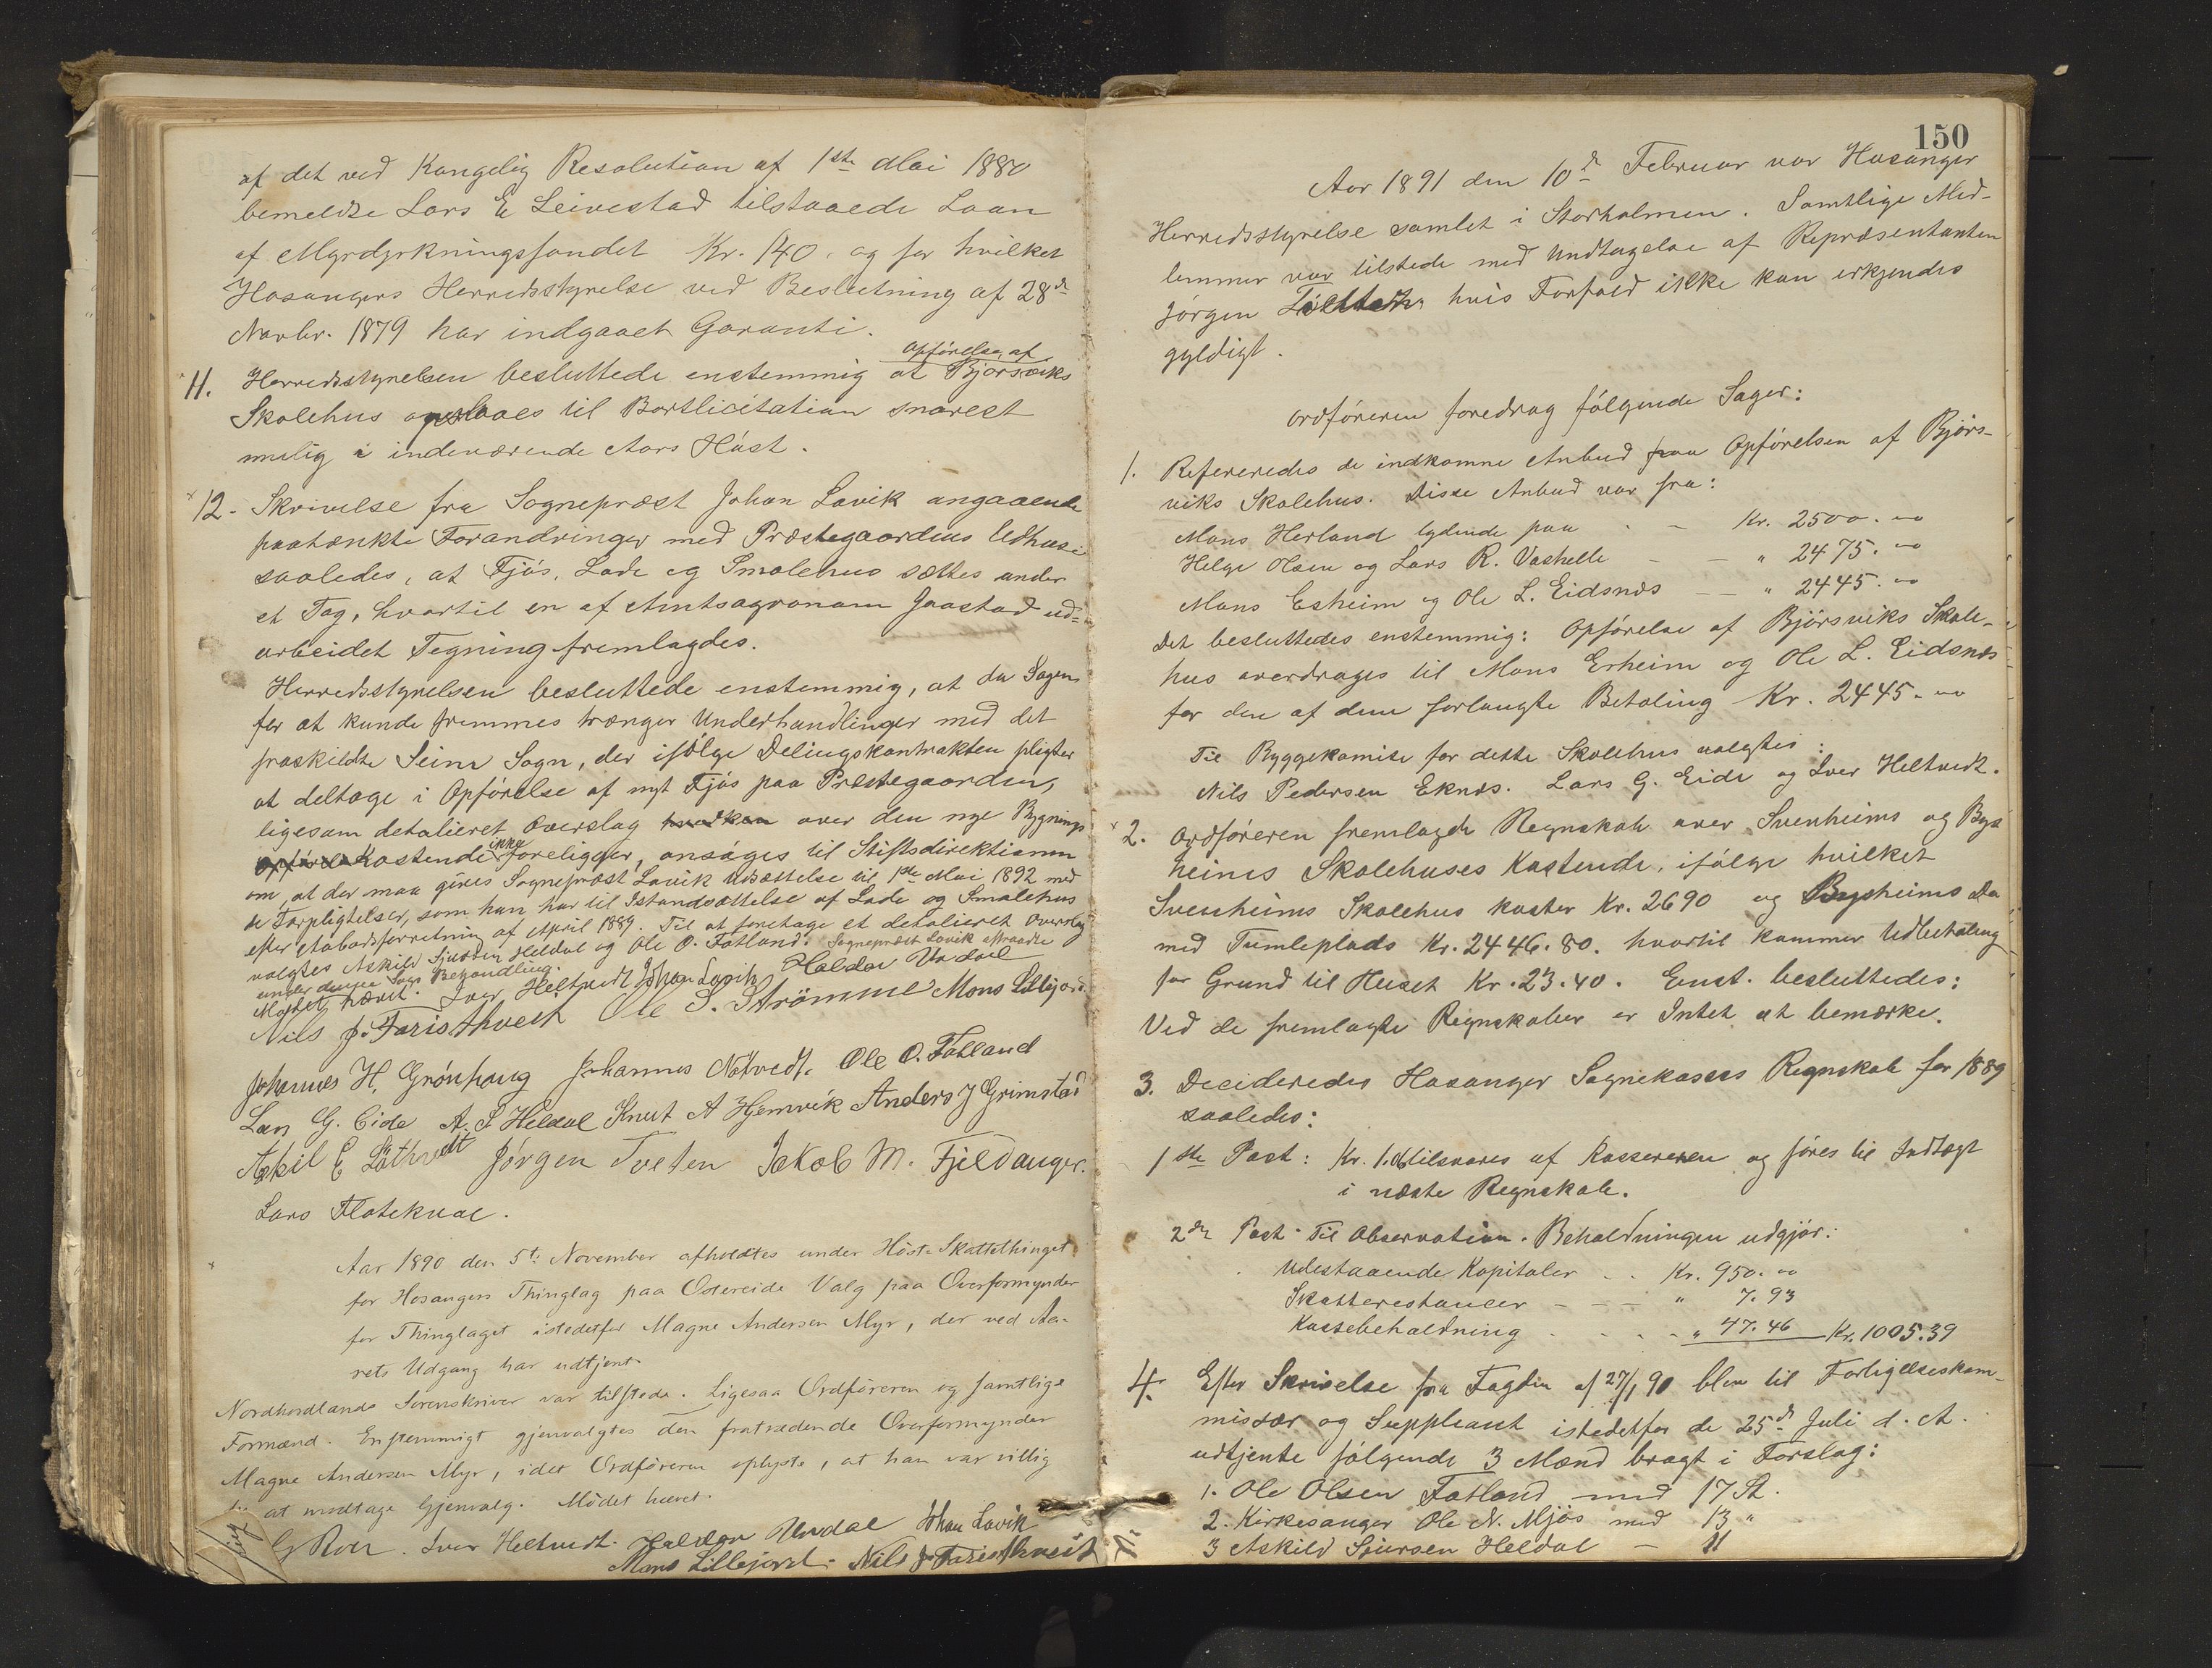 af det ved Kongelig Resolution af 1ste Mai 1880
bemeldte Lars E Leivestad tilstaaede Laan
af Myrdyrkningsfondet Kr. 140, og for hvilket
Hosangers Herredsstyrelse ved Beslutning af 28de
Novbr. 1879 har indgaaet Garanti.
11. Herredsstyrelsen besluttede enstemmig at Opførelsen af Bjørsviks
Skolehus opslaaes til Bortlicitation snarest
mulig i indeværende Aars Høst.
12. Skrivelse fra Sognepræst Johan Lavik angaaende
paatænkte Forandringer med Præstegaardens Udhuse
saaledes, at Fjøs, Lade og Smalehus sættes under
et Tag, hvortil en af Amtsagronom Jaastad ud-
arbeidet Tegning fremlagdes.
Herredsstyrelsen besluttede enstemmig, at da Sagen
for at kunde fremmes trænger Underhandlinger med det
fraskildte Seim Sogn, der ifølge Delingskontrakten pligter
at deltage i Opførelse af nyt Fjøs paa Præstegaarden,
ligesom detalieret Overslag over den nye Bygnings
Kostende ikke foreligger, ansøges til Stiftsdirektionen
om, at der maa gives Sognepræst Lavik Udsættelse til 1ste Mai 1892 med
de Forpligtelser, som han har til Istandsættelse af Lade og Smalehus
efter Aabodsforretning af April 1889. Til at foretage et detalieret Overslag
valgtes Askild Sjursen Heldal og Ole O. Fotland. Sognepræst Lavik fratraadte
under denne Sags Behandling.
Mødet hævet. Iver Heltvedt Johan Lavik Haldor Urdal
Nils J. Faristhveit Ole S. Strömme Mons Lillejord
Johannes H. Grönhaug Johannes Nøtvedt. Ole O. Fotland
Lars G. Eide A. S Heldal Knut A Hjemvik Anders J Grimstad
Askil E Løthvedt Jørgen Tveten Jakob M. Fjeldanger.
Lars Flotekval.
Aar 1890 den 5te November afholdtes under Høst-Skattethinget
for Hosangers Thinglag paa Ostereide Valg paa Overformynder
for Thinglaget istedetfor Magne Andersen Myr, der ved Aa-
rets Udgang har udtjent.
Nordhordlands Sorenskriver var tilstede. Ligesaa Ordføreren og samtlige
Formænd. Enstemmigt gjenvalgtes den fratrædende Overformynder
Magne Andersen Myr, idet Ordføreren oplyste, at han var villig
til at modtage Gjenvalg. Mødet hævet.
Iver Heltvedt. Haldor Urdal Johan Lavik
Mons Lillejord. Nils J Faristhveit
150
Aar 1891 den 10de Februar var Hosanger
Herredsstyrelse samlet i Storholmen. Samtlige Med-
lemmer var tilstede med Undtagelse af Repræsentanten
Jörgen Tveten hvis Forfald ikke kan erkjendes
gyldigt.
Ordføreren foredrog følgende Sager:
1. Refereredes de indkomne Anbud paa Opførelsen af Bjørs-
viks Skolehus. Disse Anbud var fra:
Mons Herland lydende paa - Kr. 2500.00
Helge Olsen og Lars R. Vashelle - - " 2475.00
Mons Esheim og Ole L. Eidsnes - - " 2445.00
Det besluttedes enstemmig: Opførelse af Bjørsviks Skole-
hus overdrages til Mons Esheim og Ole L. Eidsnes
for den af dem forlangte Betaling Kr. 2445.00
Til Byggekomite for dette Skolehus valgtes:
Nils Pedersen Eknes. Lars G. Eide og Iver Heltvedt.
2. Ordføreren fremlagde Regnskab over Svenheims og Bys-
heims Skolehuses Kostende, ifølge hvilket
Svenheims Skolehus koster Kr. 2690 og Bysheims Do
med Tumleplads Kr. 2446.80. hvortil kommer Udbetaling
for Grund til Huset Kr. 23.40. Enst. besluttedes:
Ved de fremlagte Regnskaber er Intet at bemærke.
3. Decideredes Hosanger Sognekasses Regnskab for 1889
saaledes:
1ste Post: Kr. 1.06 tilsvares af Kassereren og føres til Indtægt
i næste Regnskab.
2den Post: Til Observation. Beholdningen udgjør:
Udestaaende Kapitaler - - Kr. 950.00
Skatterestancer - - - " 7.93
Kassebeholdning - - - " 47.46 Kr. 1005.39
4. Efter Skrivelse fra Fogden af 27/1 90 blev til Forligelseskom-
missær og Suppleant istedetfor de 25de Juli d. A.
udtjente følgende 3 Mænd bragt i Forslag:
1. Ole Olsen Fotland med 17 St.
2. Kirkesanger Ole N. Mjøs med 13 "
3 Askild Sjursen Heldal - 11